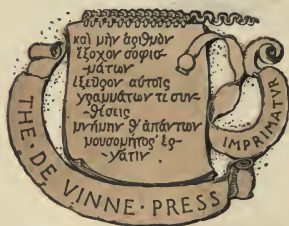 καὶ μὴν ἀριθμὸν
ἔξοχον σοφισ-
μάτων
ἐξεῦρον αὐτοῖς
γραμμάτων τε συν-
θέσεις
μνήμην θ' ἁπάντων
μουσομήτορ' ἐρ-
γάτιν
THE · DE VINNE · PRESS
IMPRIMATVR